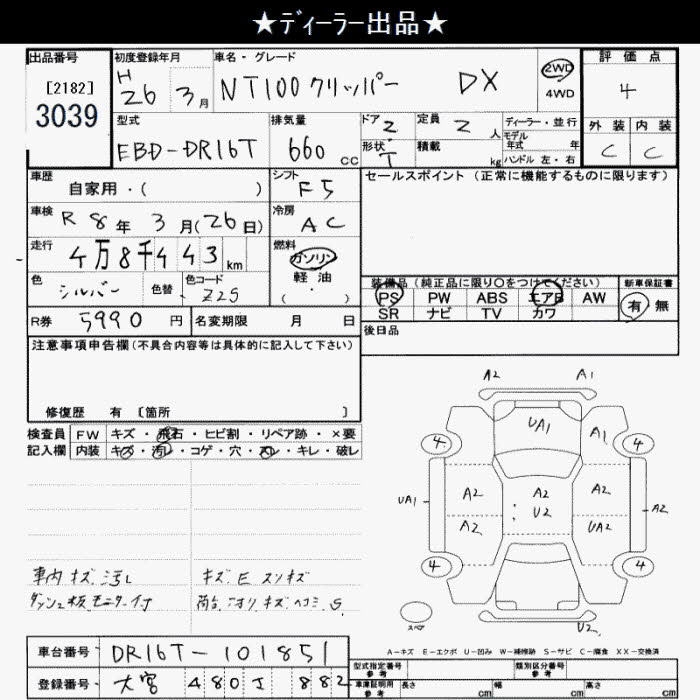 ★ディーラー出品★
出品番号
[2182]
3039
初度登録年月
H
26 3月
車名・グレード
NT100 クリッパー DX
2WD
4WD
評価点
4
外装 内装
C C
型式
EBD-DR16T
排気量
660 CC
ドア 2
形状 T
定員 2 人
積載 kg
ディーラー・並行
モデル
年式 年
ハンドル 左・右
車歴
自家用・( )
シフト
F5
セールスポイント(正常に機能するものに限ります)
車検 R 8年 3月(26日)
冷房
AC
走行
4万8千443 km
燃料
ガソリン
軽・油
( )
色
シルバー
色替
色コード
Z2S
R券 5990 円
名変期限 月 日
装備品(純正品に限り○をつけてください)
PS PW ABS エアB AW
SR ナビ TV カワ
新車保証書
有 無
後日品
注意事項申告欄(不具合内容等は具体的に記入して下さい)
修復歴 有 〔箇所 〕
検査員 FW キズ・飛石・ヒビ割・リペア跡・×要
記入欄 内装 キズ・汚レ・コゲ・穴・スレ・キレ・破レ
A2 A1
UA1
4 A1 4
UA1 A2 A2 A2 A2
A2 U2 UA2
4 4
スペア
U2
車内 キズ 汚レ
キズ E スリキズ
ダッシュ板モニター付
荷台 コオリ キズ ヘコミ S
A-キズ E-エクボ U-凹み W-補修跡 S-サビ C-腐食 XX-交換済
車台番号 DR16T-101851
登録番号 大宮 480 I 882
型式指定番号
参考
類別区分番号
参考
車庫証明用
参考
長さ cm 幅 cm 高さ cm